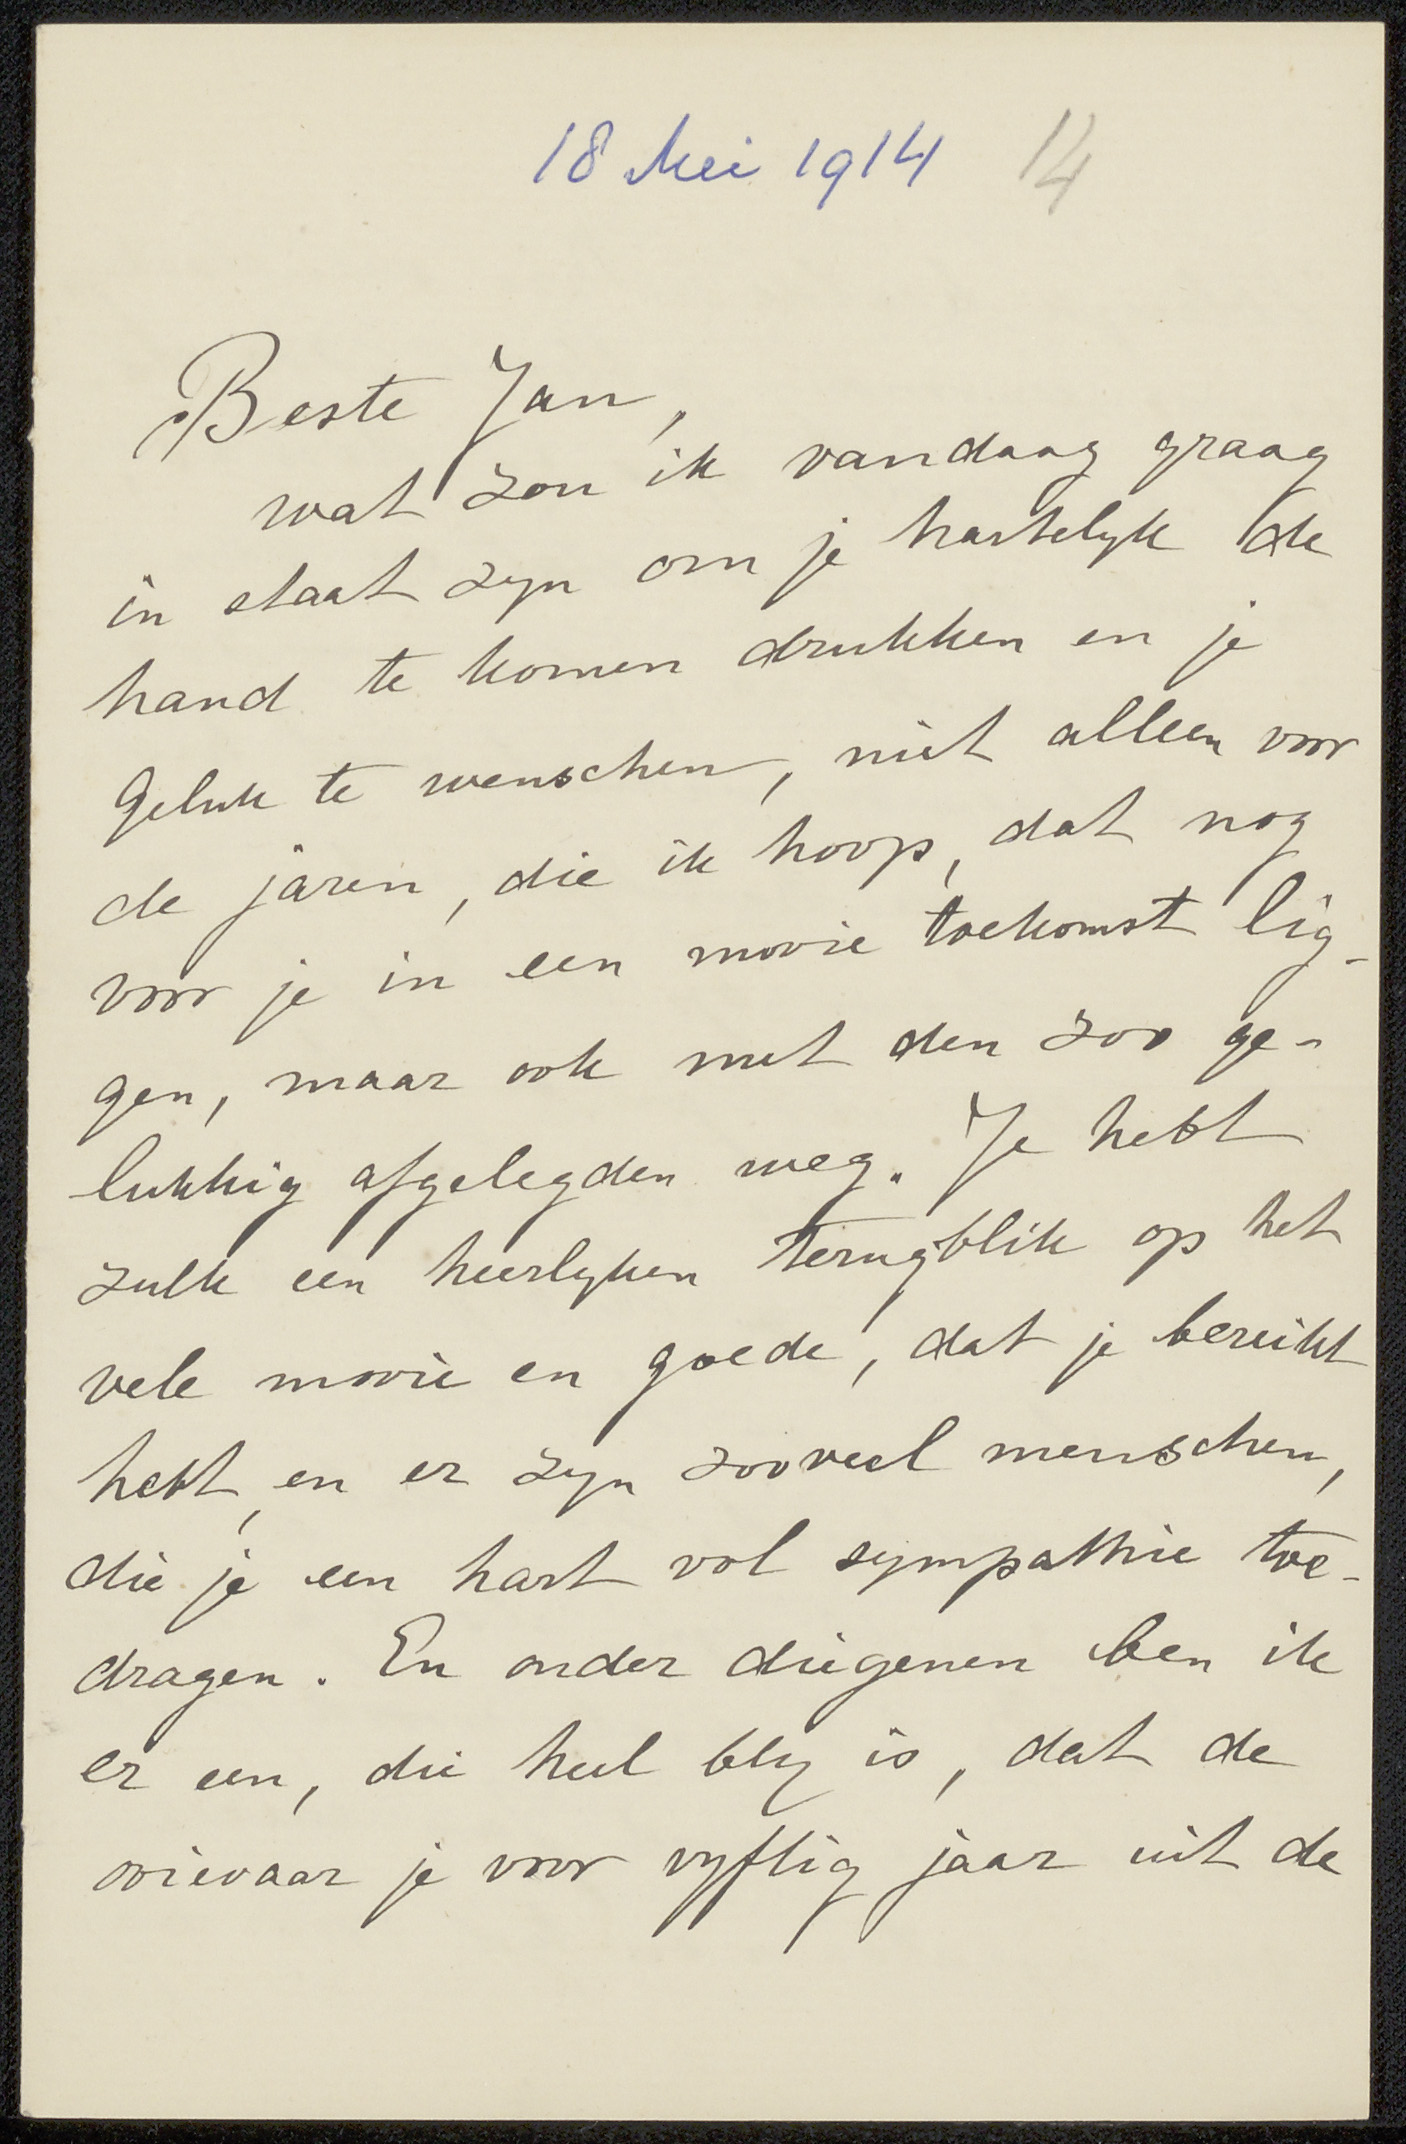 18 Mei 1914 14
Beste Jan,
wat zou ik vandaag graag
in staat zyn om je hartelyk de
hand te komen drukken en je
geluk te wenschen, niet alleen voor
de jaren, die ik hoop, dat nog
voor je in een mooie toekomst lig-
gen, maar ook met den zoo ge-
lukkig afgelegden weg. Je hebt
zulk een heerlyken terugblik op het
vele mooie en goede, dat je bereikt
hebt, en er zyn zooveel menschen,
die je een hart vol sympathie toe-
dragen. En onder diegenen ben ik
er een, die heel bly is, dat de
ooievaar je voor vyftig jaar uit de